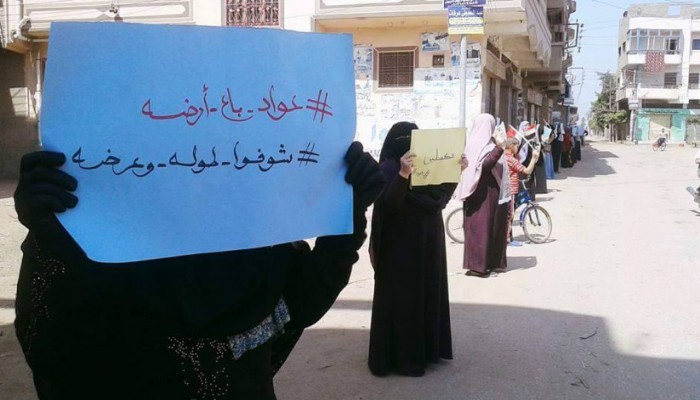 #عواد-باع-أرضه
#شوفوا-طوله-وعرضه